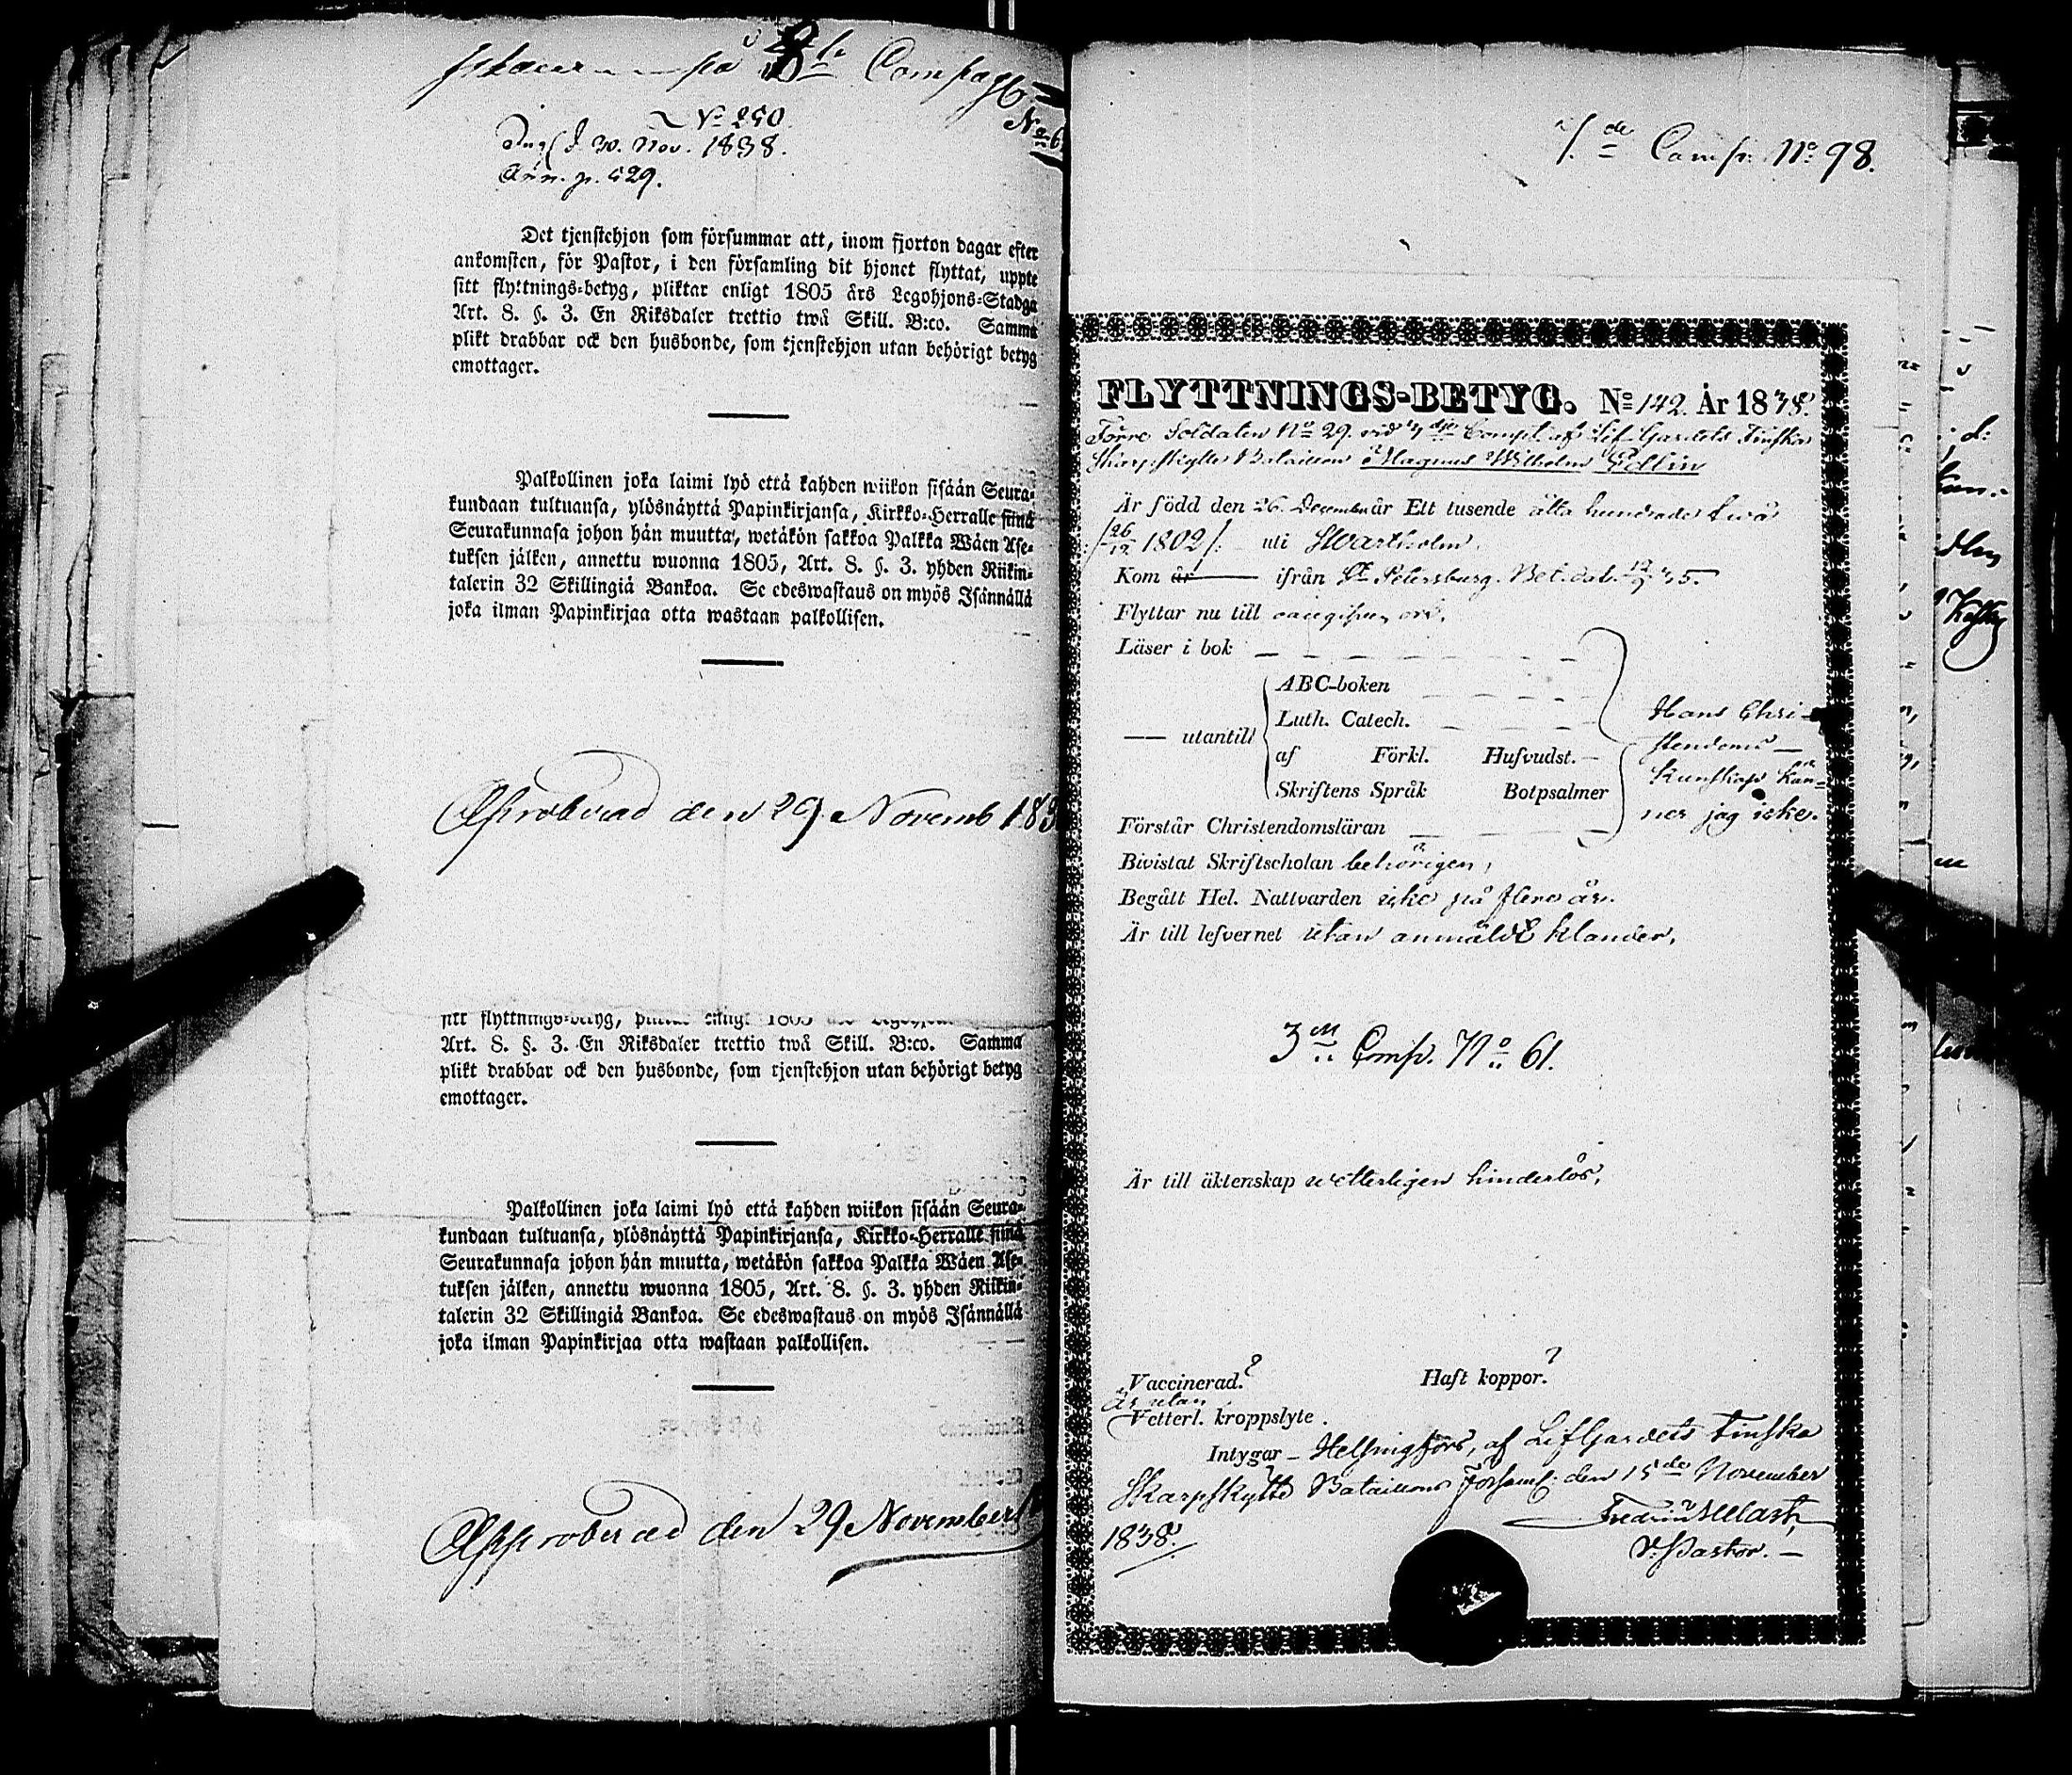 på Compag
No 6
No 250
Ing d 30. Nov. 1838.
Ann. p. 529.
Det tjenstehjon som försummar att, inom fjorton dagar efter
ankomsten, för Pastor, i den församling dit hjonet flyttat, uppte
sitt flyttnings-betyg, pliktar enligt 1805 års Legohjons-Stadga
Art. 8. §. 3. En Riksdaler trettio twå Skill. B:co. Samma
plikt drabbar ock den husbonde, som tjenstehjon utan behörigt betyg
emottager.
Palkollinen joka laimi lyö että kahden wiikon sisään Seura-
kundaan tultuansa, ylösnäyttä Papinkirjansa, Kirkko-Herralle siinä
Seurakunnasa johon hän muutta, wetäkön sakkoa Palkka Wäen Ase-
tuksen jälken, annettu wuonna 1805, Art. 8. §. 3. yhden Riikin-
talerin 32 Skillingiä Bankoa. Se edeswastaus on myös Isännällä
joka ilman Papinkirjaa otta wastaan palkollisen.
Approberad den 29. Novemb 183
sitt flyttnings-betyg, pliktar enligt 1805
Art. 8. §. 3. En Riksdaler trettio twå Skill. B:co. Samma
plikt drabbar ock den husbonde, som tjenstehjon utan behörigt betyg
emottager.
Palkollinen joka laimi lyö että kahden wiikon sisään Seura-
kundaan tultuansa, ylösnäyttä Papinkirjansa, Kirkko-Herralle siinä
Seurakunnasa johon hän muutta, wetäkön sakkoa Palkka Wäen Ase-
tuksen jälken, annettu wuonna 1805, Art. 8. §. 3. yhden Riikin-
talerin 32 Skillingiä Bankoa. Se edeswastaus on myös Isännällä
joka ilman Papinkirjaa otta wastaan palkollisen.
Approberad den 29 November
Comp. No 98.
FLYTTNINGS-BETYG. No 142. År 1838.
Förre Soldaten No 29. vid Comp. af Lif-Gardets Finska
Skarpskytte Bataillon Magnus Wilhelm Edlin
Är född den 26. December år Ett tusende åtta hundrade två
/: 26/12 1802 :/ uti Svartholm.
Kom år ifrån St Petersburg. Bet. dat. 35.
Flyttar nu till
Läser i bok
utantill
ABC-boken
Luth. Catech.
af Förkl. Hufvudst.
Skriftens Språk Botpsalmer
Hans Chri-
stendoms-
kunskap kän-
ner jag icke.
Förstår Christendomsläran
Bivistat Skriftscholan behörigen,
Begått Hel. Nattvarden icke på flere år.
Är till lefvernet utan anmäldt klander.
3 Comp. No 61.
Är till äktenskap wetterligen hinderlös.
Vaccinerad.? Haft koppor.?
Är utan
Vetterl. kroppslyte.
Intygar – Helsingfors, af LifGardets Finska
Skarpskytte Bataillons Församl: den 15de November
1838.
V. Pastor.